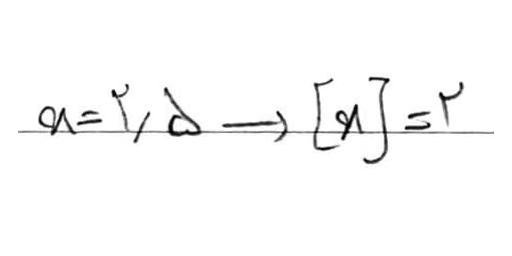 x=۲,۵ → [x]=۲